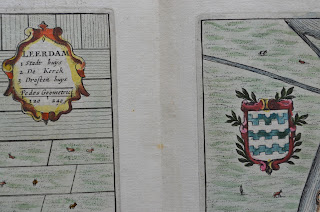 LEERDAM
1 Stadt huys
2 De Kerck
3 Drossten huys
Pedes Geometrici
120 240